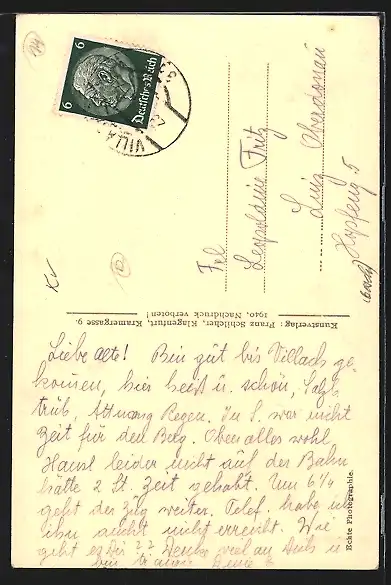 6
Deutsches Reich
6
VILLA
Frl
Leopoldine Fritz
Linz Oberdonau
Hopfeng 5
Kunstverlag: Franz Schilcher, Klagenfurt, Kramergasse 9.
1940, Nachdruck verboten!
Echte Photographie.
Liebe Alte! Bin gut bis Villach ge-
kommen, hier heiß u. schön, Salzb
trüb, Attnang Regen. In S. war nicht
Zeit für den Berg. Oben alles wohl
Hansl leider nicht auf der Bahn
hätte 2 St. Zeit gehabt. Um 6¼
geht der Zug weiter. Telef. habe ich
ihn auch nicht erreicht. Wie
geht es Dir?? Denke viel an Dich u
bin